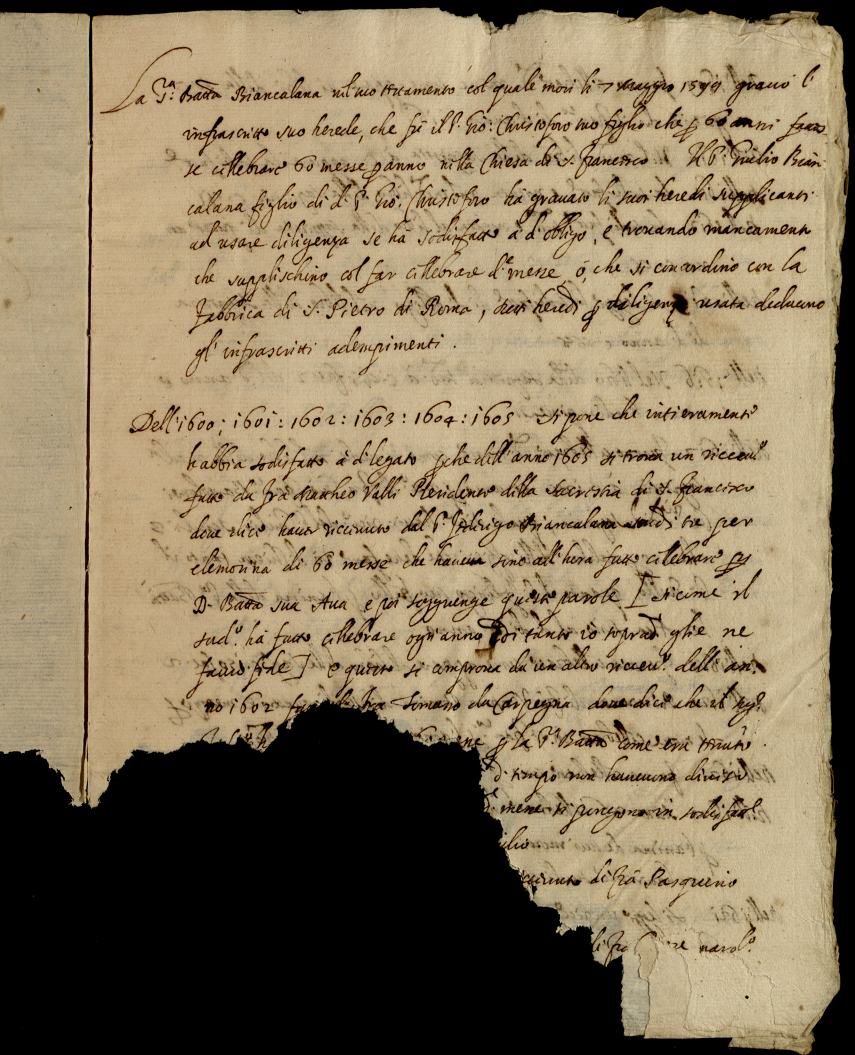 La Sra. Batta Biancalana nel suo testamento col quale morì li 7 Maggio 1599 gravò l'
infrascritto suo herede, che fù il Sr. Gio: Christoforo suo figlio che p 60 anni facesse
celebrare 60 messe p anno nella Chiesa di S. Francesco. Il Sr. Giulio Bian
calana figlio di d. Sr. Gio: Christoforo hà gravato li suoi heredi supplicanti
ad usare diligenza se hà sodisfatto à d. obligo, e trovando mancamento
che supplischino col far celebrare de. messe, ò, che si concordino con la
fabbrica di S. Pietro di Roma, detti heredi p diligenze usata deducono
gl' infrascritti adempimenti.
Dell' 1600: 1601: 1602: 1603: 1604: 1605 si pone che intieramente
habbia sodisfatto à d. legato pche dell' anno 1605 si trova un riceuu.
fatto da frà Mattheo Valli Presidente della Sacrestia di S. Francesco
dove dice haver riceuuto dal Sr. Federigo Biancalana scudi tre per
elemosina di 60 messe che haveva sino all' hora fatto celebrare p
D. Batta sua Ava e poi soggiunge queste parole [si come il
sud.o hà fatto celebrare ogni anno di tanto io soprad. glie ne
faccio fede] e questo si comprova da un altro riceuu. dell' an
no 1602 frà Simone da Carpegna dove dice che il sig.
p la Sra. Batta come era tenuto
d. tempo non havevano diviso
d. messe si pongono in
di frà Pasquino